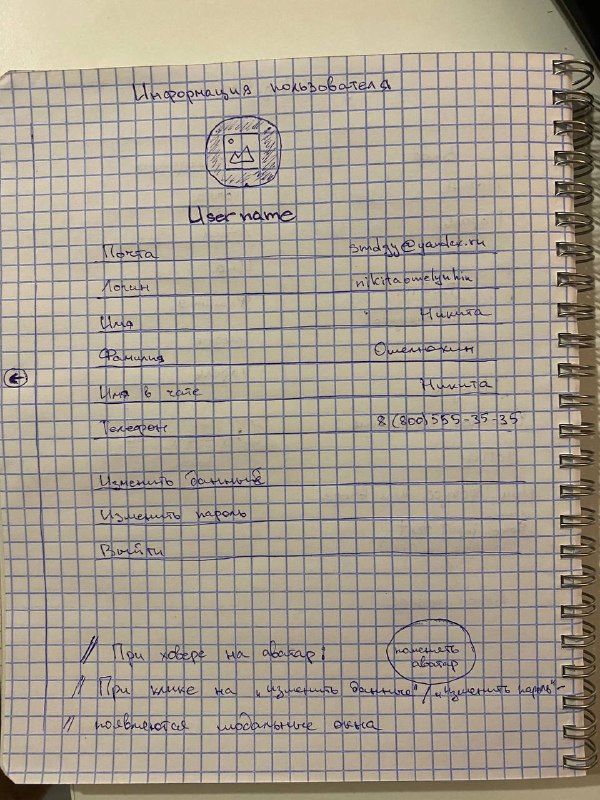 Информация пользователя
Username
Почта smdgy@yandex.ru
Логин nikitaomelyuhin
Имя Никита
Фамилия Омелюхин
Имя в чате Никита
Телефон 8 (800) 555-35-35
Изменить данные
Изменить пароль
Выйти
// При ховере на аватар: поменять аватар
// При клике на „изменить данные" / „изменить пароль" -
// появляются модальные окна